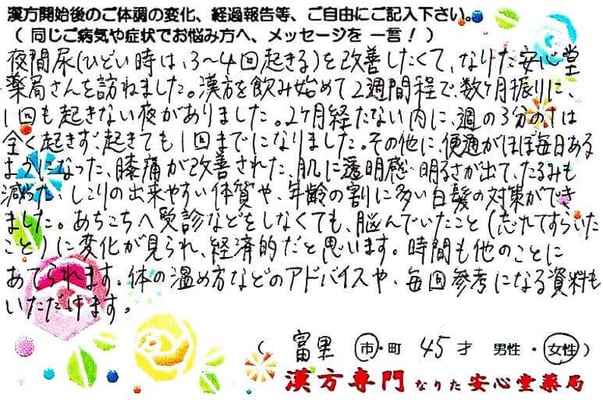 漢方開始後のご体調の変化、経過報告等、ご自由にご記入下さい。
(同じご病気や症状でお悩み方へ、メッセージを 一言!)
夜間尿(ひどい時は、3〜4回起きる)を改善したくて、なりた安心堂
薬局さんを訪ねました。漢方を飲み始めて2週間程で、数ヶ月振りに、
1回も起きない夜がありました。2ヶ月経たない内に、週の3分の1は
全く起きず、起きても1回までになりました。その他に、便通がほぼ毎日ある
ようになった、膝痛が改善された、肌に透明感・明るさが出て、たるみも
減った、しこりの出来やすい体質や、年齢の割に多い白髪の対策ができ
ました。あちこちへ受診などをしなくても、悩んでいたこと(忘れてすらいた
こと)に変化が見られ、経済的だと思います。時間も他のことに
あてられます。体の温め方などのアドバイスや、毎回参考になる資料も
いただけます。
( 富里 市・町 45才 男性・女性)
漢方専門 なりた安心堂薬局